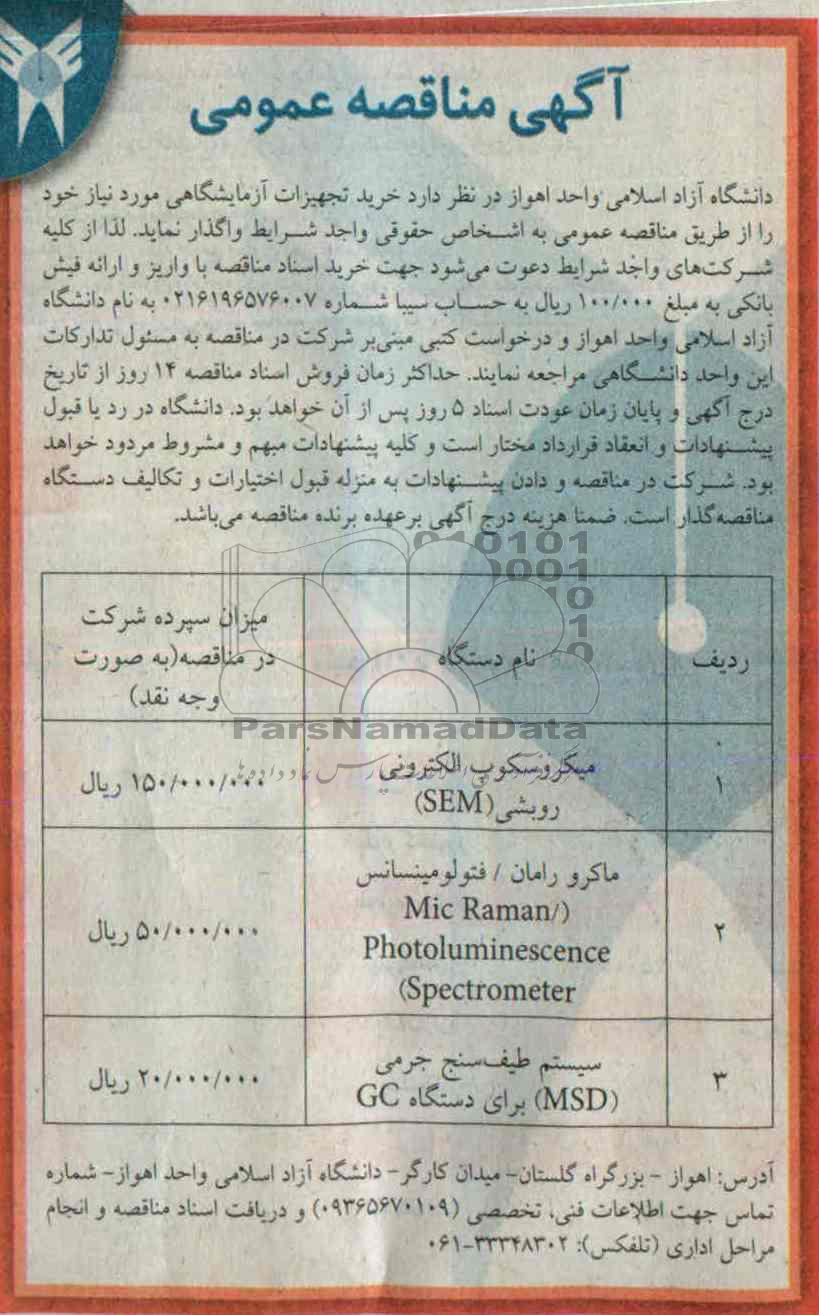 آگهی مناقصه عمومی
دانشگاه آزاد اسلامی واحد اهواز در نظر دارد خرید تجهیزات آزمایشگاهی مورد نیاز خود
را از طریق مناقصه عمومی به اشخاص حقوقی واجد شرایط واگذار نماید. لذا از کلیه
شرکت‌های واجد شرایط دعوت می‌شود جهت خرید اسناد مناقصه با واریز و ارائه فیش
بانکی به مبلغ ۱۰۰/۰۰۰ ریال به حساب سیبا شماره ۰۲۱۶۱۹۶۵۷۶۰۰۷ به نام دانشگاه
آزاد اسلامی واحد اهواز و درخواست کتبی مبنی‌بر شرکت در مناقصه به مسئول تدارکات
این واحد دانشگاهی مراجعه نمایند. حداکثر زمان فروش اسناد مناقصه ۱۴ روز از تاریخ
درج آگهی و پایان زمان عودت اسناد ۵ روز پس از آن خواهد بود. دانشگاه در رد یا قبول
پیشنهادات و انعقاد قرارداد مختار است و کلیه پیشنهادات مبهم و مشروط مردود خواهد
بود. شرکت در مناقصه و دادن پیشنهادات به منزله قبول اختیارات و تکالیف دستگاه
مناقصه‌گذار است. ضمنا هزینه درج آگهی برعهده برنده مناقصه می‌باشد.
ردیف
نام دستگاه
میزان سپرده شرکت
در مناقصه(به صورت
وجه نقد)
۱
میکروسکوپ الکترونی
روبشی(SEM)
۱۵۰/۰۰۰/۰۰۰ ریال
۲
ماکرو رامان / فتولومینسانس
(Mic Raman/
Photoluminescence
Spectrometer)
۵۰/۰۰۰/۰۰۰ ریال
۳
سیستم طیف‌سنج جرمی
(MSD) برای دستگاه GC
۲۰/۰۰۰/۰۰۰ ریال
ParsNamadData
آدرس: اهواز - بزرگراه گلستان- میدان کارگر- دانشگاه آزاد اسلامی واحد اهواز- شماره
تماس جهت اطلاعات فنی، تخصصی (۰۹۳۶۵۶۷۰۱۰۹) و دریافت اسناد مناقصه و انجام
مراحل اداری (تلفکس): ۳۳۳۴۸۳۰۲-۰۶۱